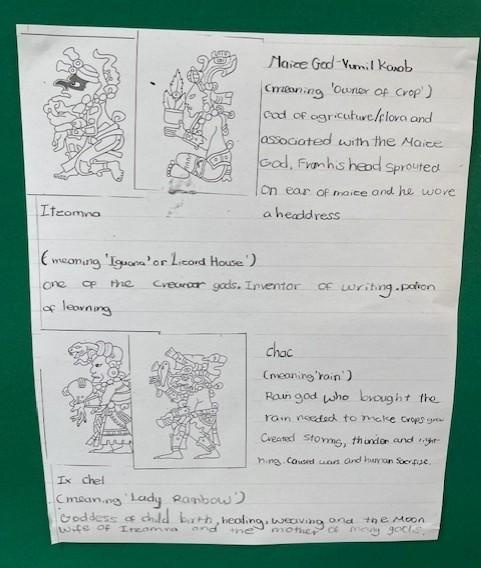 Maize God - Yumil Kaxob
(meaning 'Owner of Crop')
God of agriculture/flora and
associated with the Maize
God, From his head sprouted
on ear of maize and he wore
a headdress
Itzamna
(meaning 'Iguana' or 'Lizard House')
one of the creator gods. Inventor of writing. patron
of learning
chac
(meaning 'rain')
Rain god who brought the
rain needed to make crops grow
Created storms, thunder and light-
ning. Caused wars and human sacrifice.
Ix chel
(meaning 'Lady Rainbow')
Goddess of child birth, healing, weaving and the Moon
Wife of Itzamna and the mother of many gods.